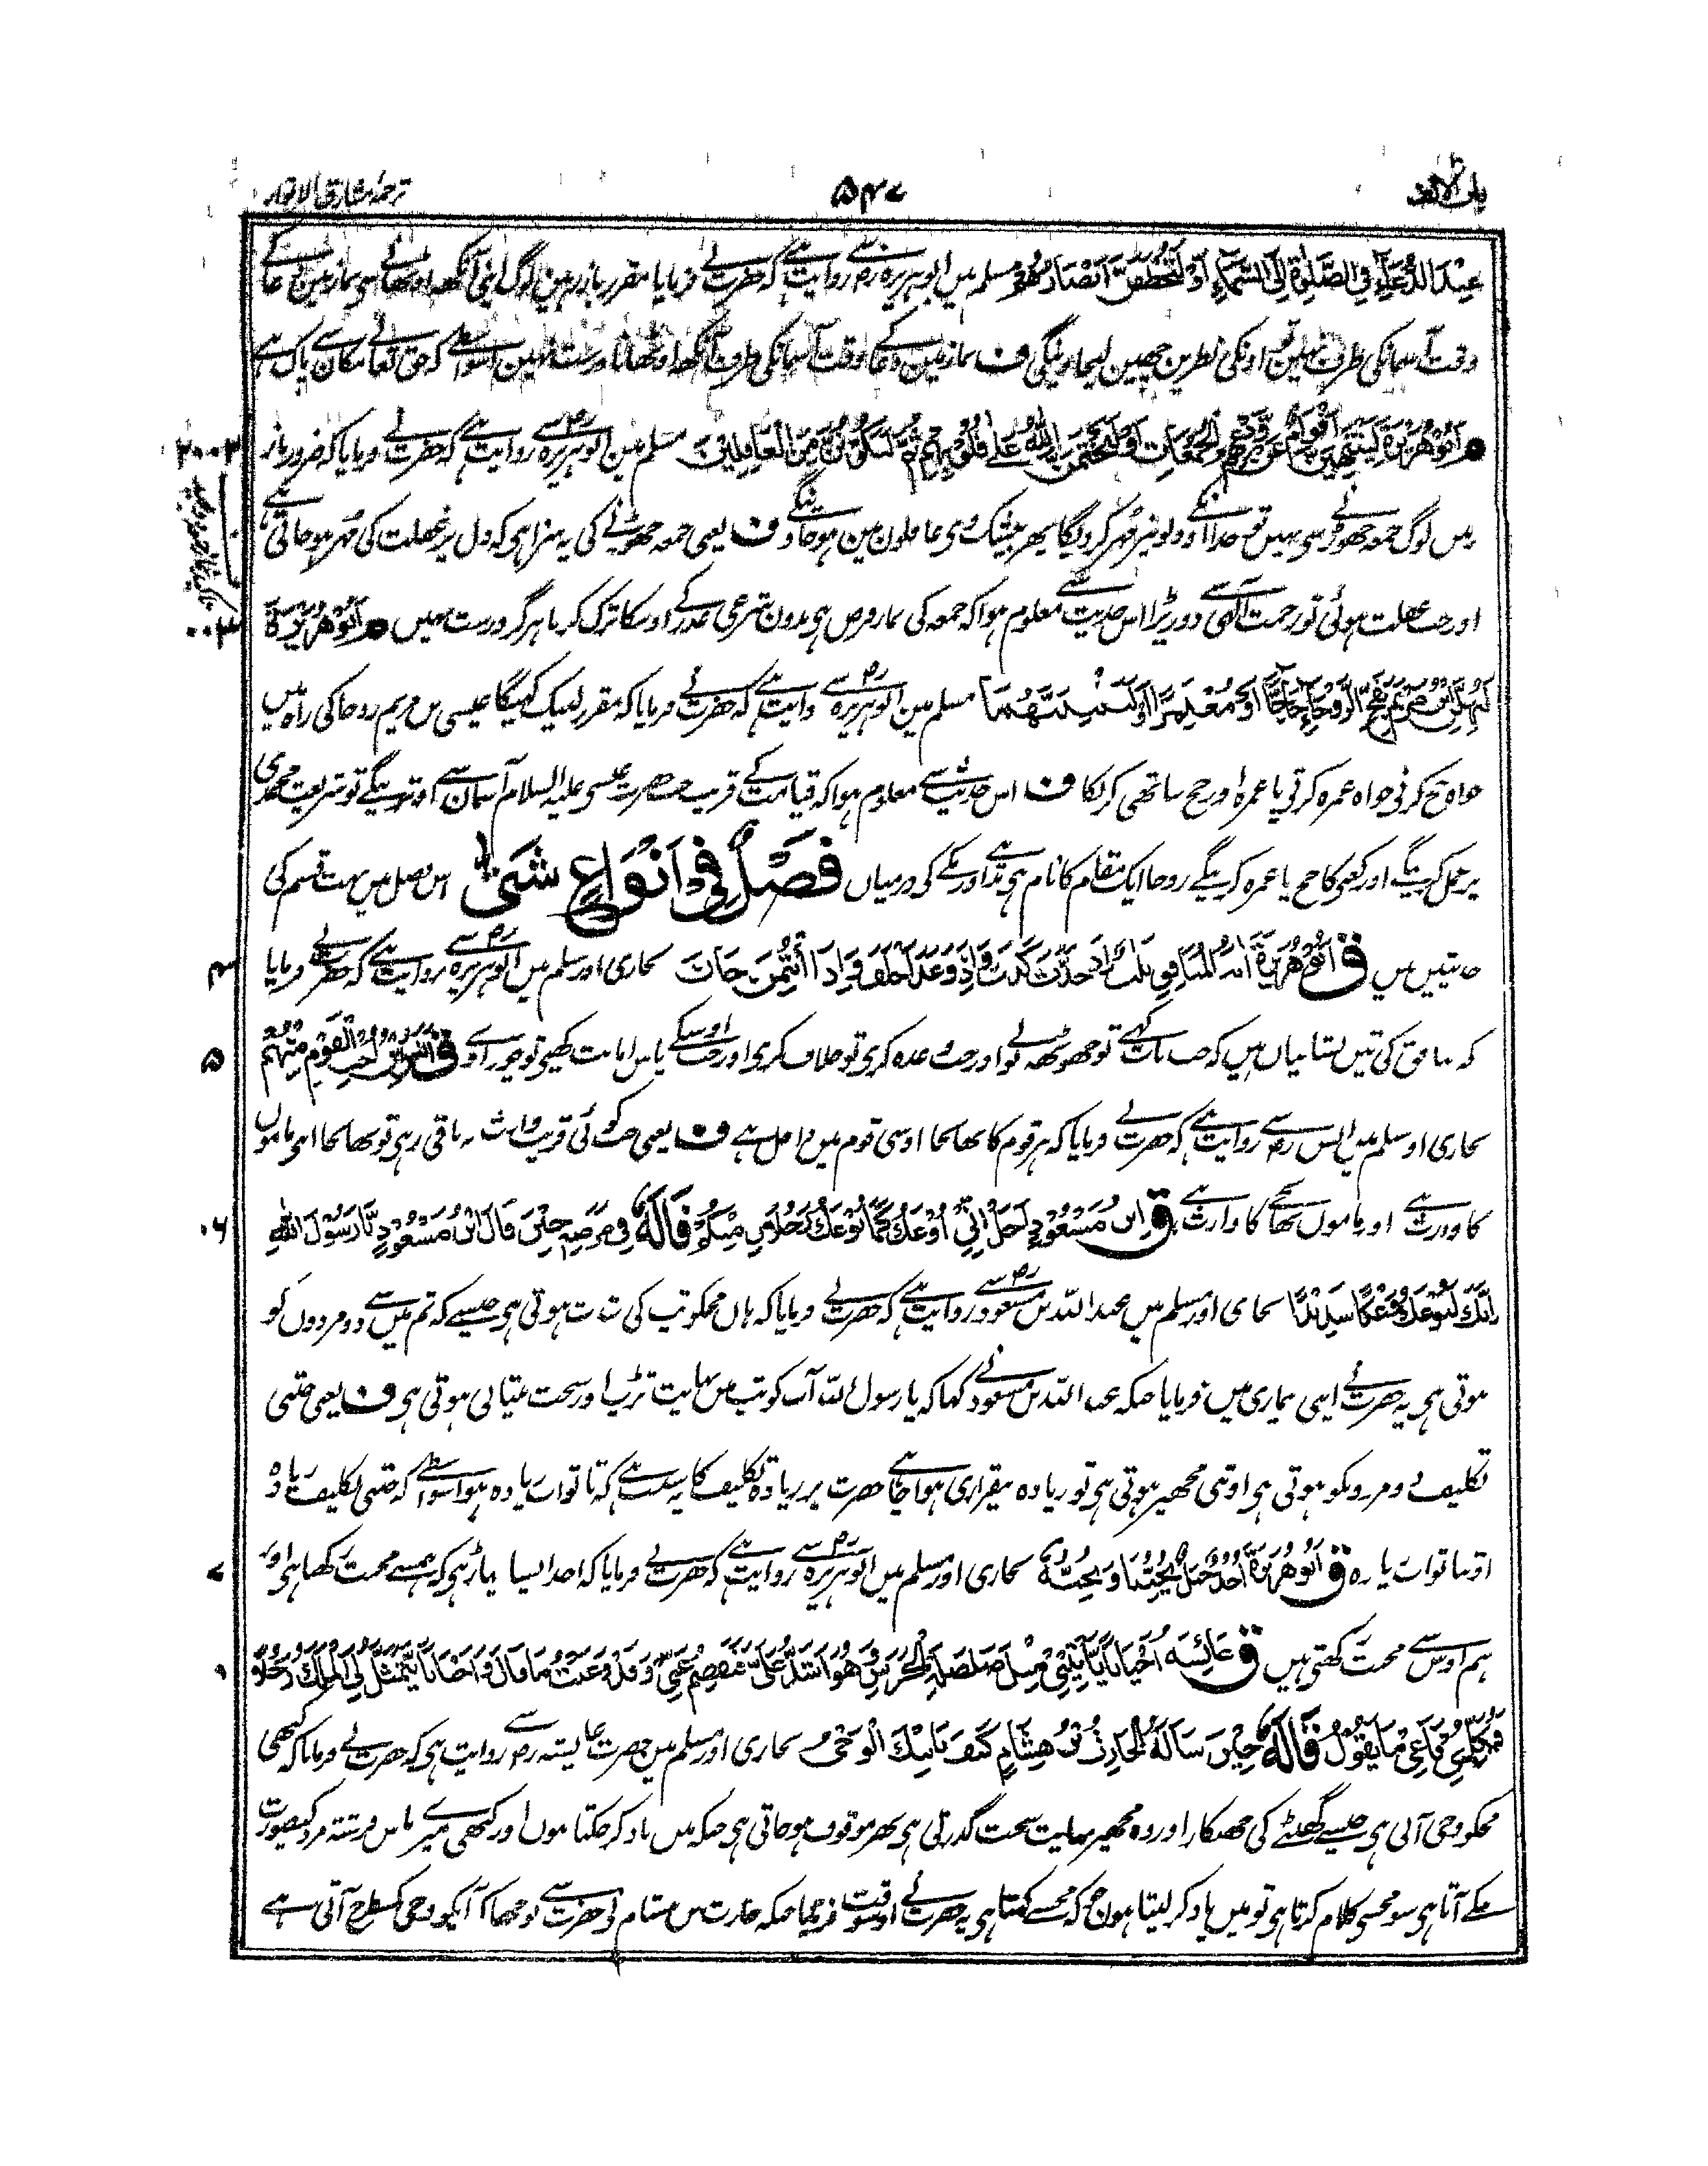 ترجمہ مشارق الانوار
۵۴۷
عِنْدَ الدُّعَاءِ فِي الصَّلٰوةِ اِلَى السَّمَاءِ اَوْ لَتُخْطَفَنَّ اَبْصَارُهُمْ مسلم میں ابو ہریرہ رض سے روایت ہے کہ حضرت نے فرمایا مقرر باز رہین لوگ اپنی آنکھہ اوٹھانے سی نماز مین دعا کے
وقت آسمانکی طرف نہین تو اونکی نظرین چھین لیجاوینگی ف نماز مین دعا کے وقت آسمانکی طرف آنکھہ اوٹھانا درست نہین اسواسطے کہ حق تعالے مکان سے پاک ہے
م اَبُوْ هُرَيْرَةَ لَيَنْتَهِيَنَّ اَقْوَامٌ عَنْ وَدْعِهِمُ الْجُمُعَاتِ اَوْ لَيَخْتِمَنَّ اللّٰهُ عَلٰى قُلُوْبِهِمْ ثُمَّ لَيَكُوْنُنَّ مِنَ الْغَافِلِيْنَ مسلم مین ابو ہریرہ رض سے روایت ہے کہ حضرت نے فرمایا کہ ضرور باز
رہیں لوگ جمعہ چھوڑنے سی نہیں تو خدا اونکے دلونپر مہر کر دیگا پھر بیشک وی غافلون مین ہو جاوینگے ف یعنی جمعہ چھوڑنے کی یہ سزا ہی کہ دل پر غفلت کی مہر ہو جاتی ہے
اور جب غفلت ہوئی تو رحمت آلہی سے دور پڑا اس حدیث سے معلوم ہوا کہ جمعہ کی نماز فرض ہی بدون شرعی عذر کے اوسکا ترک کرنا ہرگز درست نہیں م اَبُوْ هُرَيْرَةَ
لَيُهِلَّنَّ ابْنُ مَرْيَمَ بِفَجِّ الرَّوْحَاءِ حَاجًّا اَوْ مُعْتَمِرًا اَوْ لَيَثْنِيَنَّهُمَا مسلم مین ابو ہریرہ رض سے روایت ہے کہ حضرت نے فرمایا کہ مقرر لبیک کہیگا عیسی بن مریم روحا کی راہ میں
خواہ حج کرنی خواہ عمرہ کرتی یا عمرہ اور حج ساتھی کریگا ف اس حدیث سے معلوم ہوا کہ قیامت کے قریب جب حضرت عیسی علیہ السلام آسمان سے اوترینگے تو شریعت محمدی
پر عمل کرینگے اور کعبی کا حج یا عمرہ کرینگے روحا ایک مقام کا نام ہی مدینے اور مکے کی درمیاں فَصْلٌ فِيْ اَنْوَاعٍ شَتّٰى اس فصل میں بہت قسم کی
حدیثیں ہیں ق اَبُوْ هُرَيْرَةَ اٰيَةُ الْمُنَافِقِ ثَلٰثٌ اِذَا حَدَّثَ كَذَبَ وَاِذَا وَعَدَ اَخْلَفَ وَاِذَا اؤْتُمِنَ خَانَ بخاری اور مسلم میں ابو ہریرہ رض سے روایت ہے کہ حضرت نے فرمایا
کہ منافق کی تین نشانیاں ہیں کہ جب بات کہے تو جھوٹھہ بولے اور جب وعدہ کری تو خلاف کری اور جب اوسکے پاس امانت رکھیں تو چوراوے ق اَنَسٌ اِبْنُ اُخْتِ الْقَوْمِ مِنْهُمْ
بخاری اور مسلم میں انس رض سے روایت ہے کہ حضرت نے فرمایا کہ ہر قوم کا بھانجا اوسی قوم میں داخل ہے ف یعنی جب کوئی قریب وارث نہ باقی رہی تو بھانجا اپنی ماموں
کا وارث ہے اور ماموں بھانجے کا وارث ہے ق اِبْنُ مَسْعُوْدٍ اَجَلْ اِنِّيْ اُوْعَكُ كَمَا يُوْعَكُ رَجُلَانِ مِنْكُمْ قَالَهٗ فِيْ مَرَضِهٖ حِيْنَ قَالَ ابْنُ مَسْعُوْدٍ يَا رَسُوْلَ اللّٰهِ
اِنَّكَ لَتُوْعَكُ وَعْكًا شَدِيْدًا بخاری اور مسلم میں عبد اللہ بن مسعود رض سے روایت ہے کہ حضرت نے فرمایا کہ ہاں مجکو تپ کی شدت ہوتی ہی جیسے کہ تم میں سے دو مردوں کو
ہوتی ہی یہ حضرت نے اپنی بیماری میں فرمایا جبکہ عبد اللہ بن مسعود نے کہا کہ یا رسول اللہ آپ کو تپ میں نہایت تڑپ اور سخت بیتابی ہوتی ہی ف یعنی جتنی
تکلیف دو مردونکو ہوتی ہی اوتنی مجھپر ہوتی ہی تو زیادہ بیقراری ہوا چاہے حضرت پر زیادہ تکلیف کا یہ سبب ہے کہ تا ثواب زیادہ ہو اسواسطے کہ جتنی تکلیف زیادہ
اوتنا ثواب زیادہ ق اَبُوْ هُرَيْرَةَ اُحُدٌ جَبَلٌ يُحِبُّنَا وَنُحِبُّهٗ بخاری اور مسلم میں ابو ہریرہ رض سے روایت ہے کہ حضرت نے فرمایا کہ احد ایسا پہاڑ ہی کہ ہمسے محبت رکھتا ہی اور
ہم اوس سے محبت رکھتی ہیں ق عَائِشَةَ اَحْيَانًا يَأْتِيْنِيْ مِثْلَ صَلْصَلَةِ الْجَرَسِ وَهُوَ اَشَدُّهٗ عَلَيَّ فَيَفْصِمُ عَنِّيْ وَقَدْ وَعَيْتُ مَا قَالَ وَاَحْيَانًا يَتَمَثَّلُ لِيَ الْمَلَكُ رَجُلًا
فَيُكَلِّمُنِيْ فَاَعِيْ مَا يَقُوْلُ قَالَهٗ حِيْنَ سَاَلَهُ الْحَارِثُ بْنُ هِشَامٍ كَيْفَ يَاْتِيْكَ الْوَحْيُ بخاری اور مسلم میں حضرت عایشہ رض سے روایت ہی کہ حضرت نے فرمایا کہ کبھی
مجکو وحی آتی ہی جیسے گھنٹے کی جھنکار اور وہ مجھپر نہایت سخت گذرتی ہی پھر موقوف ہو جاتی ہی جبکہ میں یاد کر چکتا ہوں اور کبھی میرے پاس فرشتہ مرد کیصورت
بنکے آتا ہی سو مجسی کلام کرتا ہی تو میں یاد کر لیتا ہون جو کہ مجسے کہتا ہی یہ حضرت نے اوسوقت فرمایا جبکہ حارث بن ہشام نے حضرت سے پوچھا کہ آپکو وحی کسطرح آتی ہے